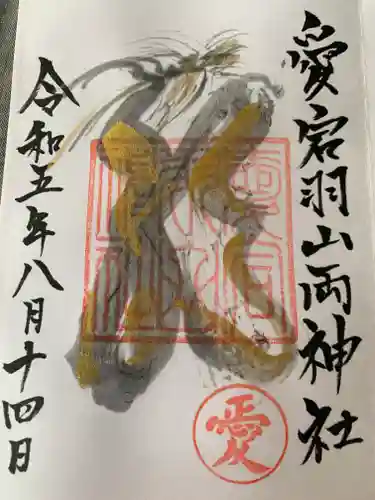 愛宕羽山両神社
令和五年八月十四日
愛